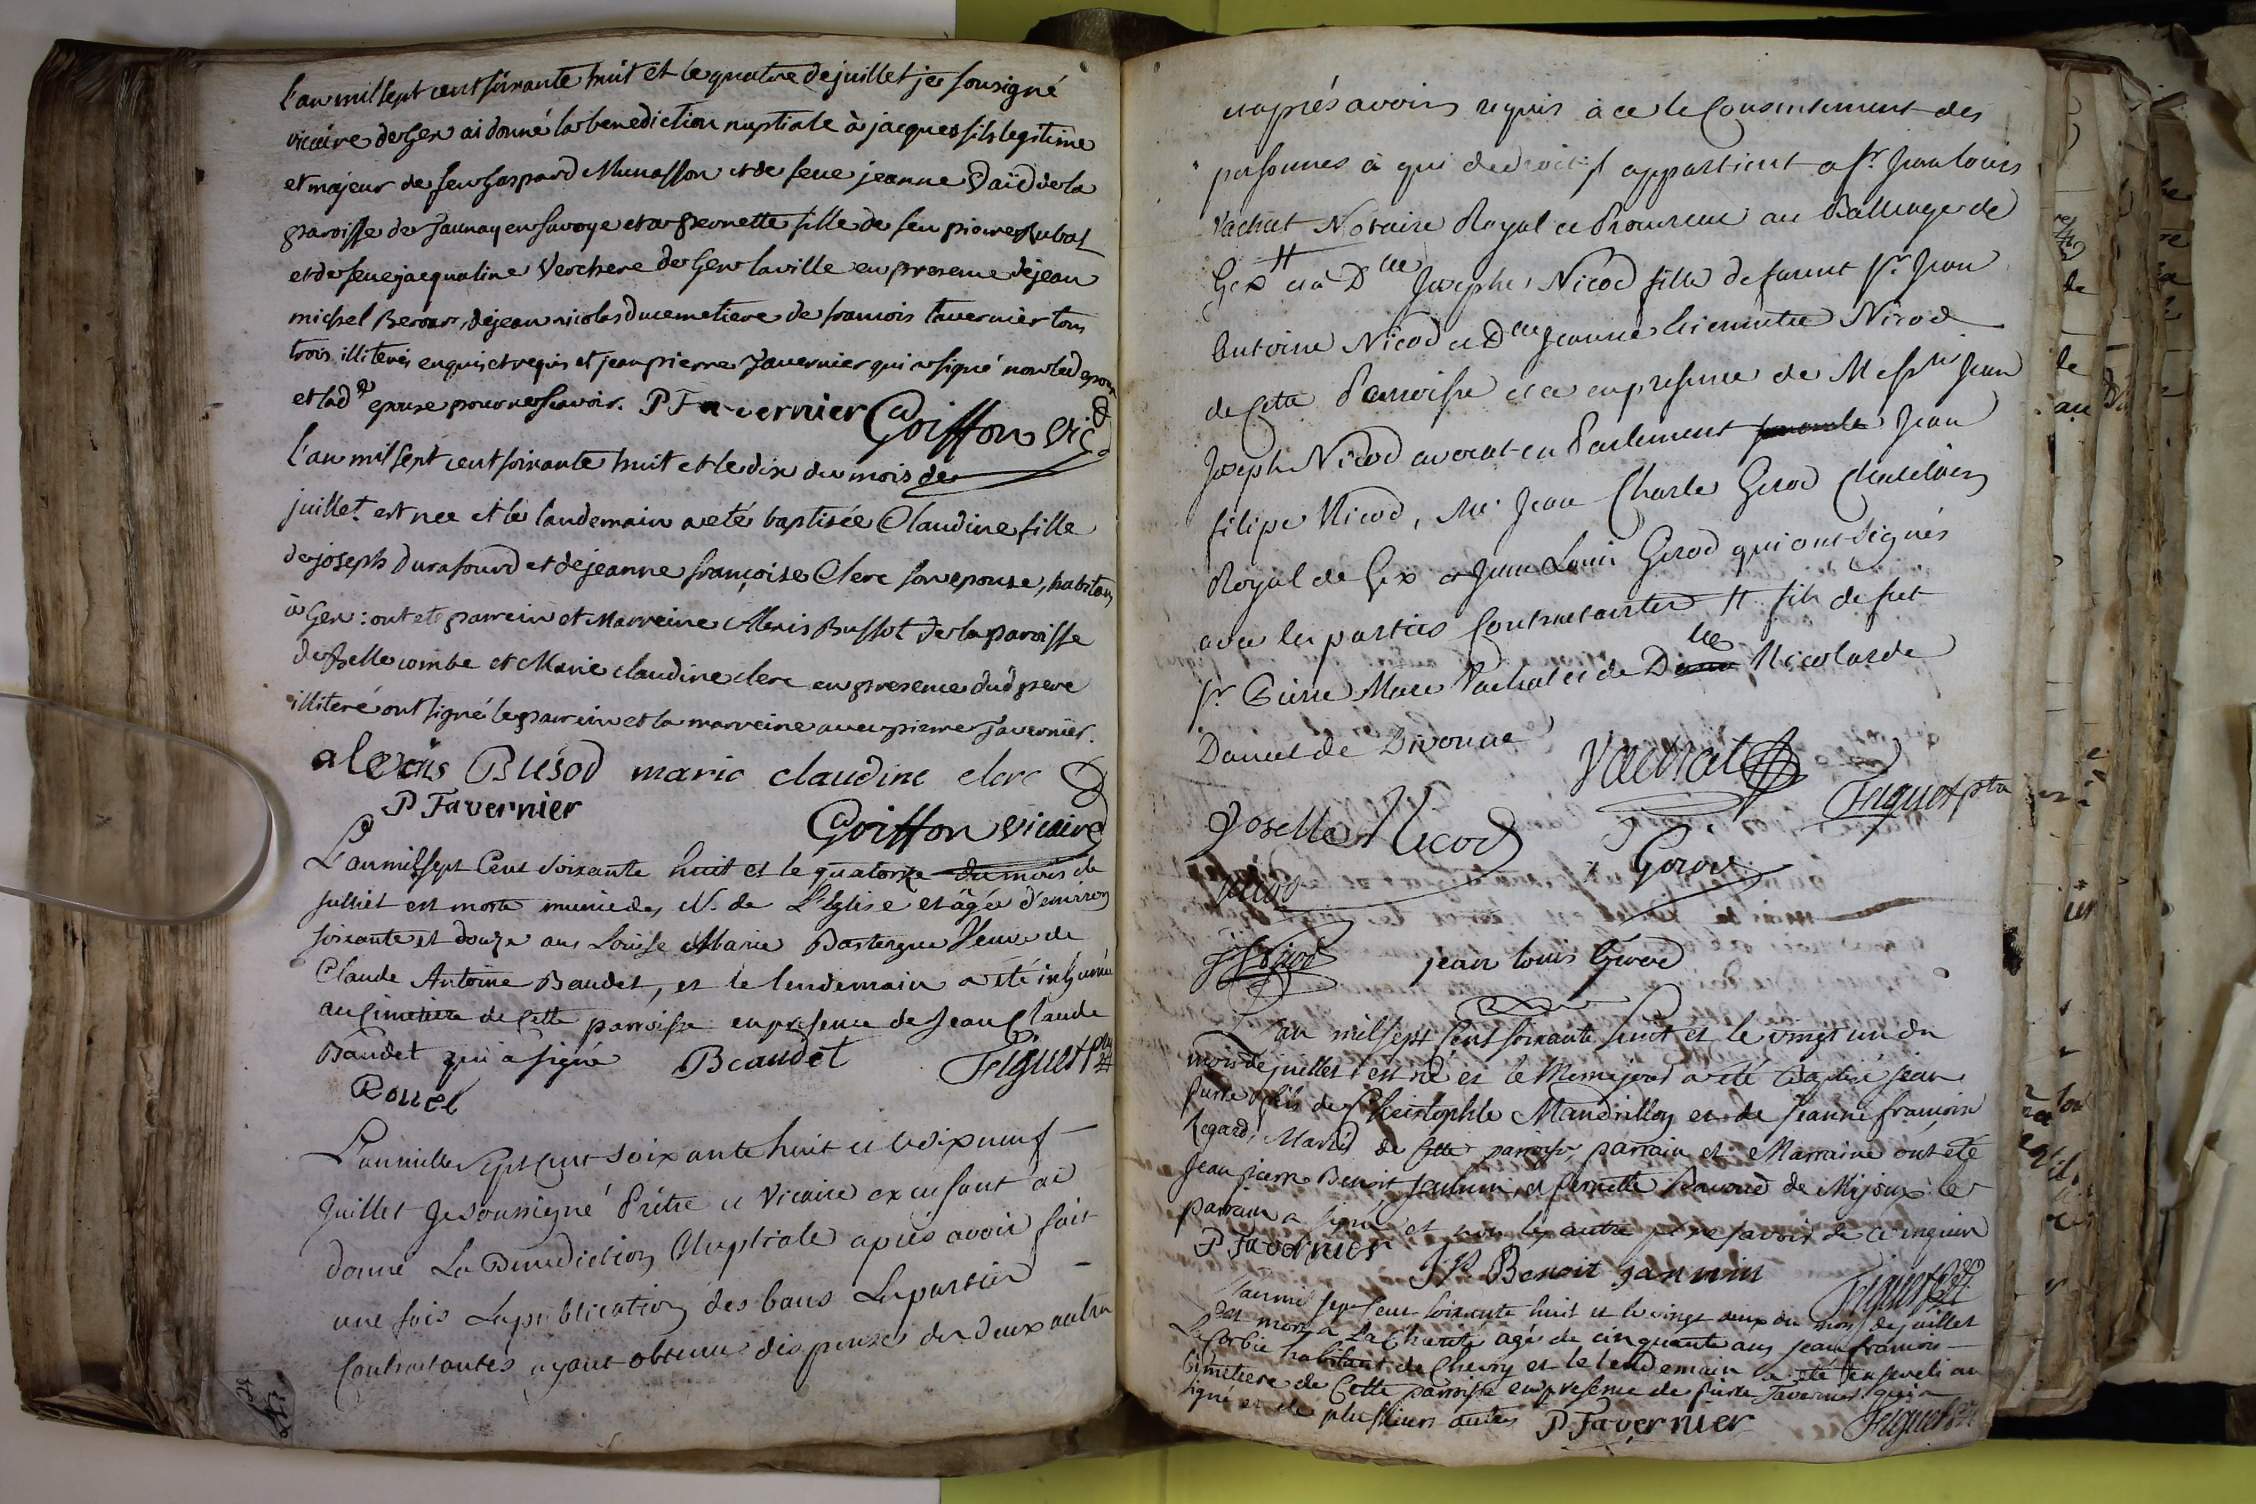 l'an mil sept cent soixante huit et le quatre de juillet je sousigné
vicaire de Gex ai donné la benediction nuptiale à jacques fils legitime
et majeur de feu Gaspard Munasson et de feue jeanne
paroisse de en Savoye et a pernette fille de feu pierre Rubat
et de feue jacqualine Verchere de Gex la ville en presence de jean
michel de jean nicolas ducemetiere de francois tavernier tous
trois illiterés enquis et requis et jean pierre Tavernier qui a signé non led epoux
et lad.e epouse pour ne scavoir. P Tavernier Goiffon vic.
l'an mil sept cent soixante huit et le dix du mois de
juillet est nee et le landemain a eté baptisée Claudine fille
de joseph Durafourd et de jeanne françoise Clerc son epouse, habitans
à Gex : ont eté parrein et Marreine Alexis Bussot de la paroisse
de Bellecombe et Marie claudine clerc en presence dud pere
illiteré ont signé le parrein et la marreine avec pierre Tavernier.
alexis Busod marie claudine clerc
P Tavernier Goiffon vicaire
L'an mil sept Cent Soixante huit et le quatorze du mois de
juillet est morte munie des S. de L'Eglise et âgée d'environ
soixante et douze ans Louise Marie Veuve de
Claude Antoine Baudet, et le lendemain a été inhumée
au Cimetiere de Cette parroisse en presence de Jean Claude
Baudet qui a signé Beaudet
L'an mille sept cent soixante huit et le dix neuf
Juillet Je soussigné Prêtre et Vicaire ai
donné La Benediction Nuptiale après avoir fait
une fois La publication des bans Les parties
Contractantes ayant obtenu dispense des deux autres
et après avoir requis à ce le Consentement des
personnes à qui de droit il appartient a Sr. Jean louis
Vachat Notaire Royal et Procureur au Balliage de
Gex # et à Dlle Josephe Nicod fille de Sr. Jean
Antoine Nicod et Dlle Jeanne Nicod
de Cette Parroisse et ce en presence de Jean
Joseph Nicod avocat en Parlement Jean
filipe Nicod, Me Jean Charle Gerod Chatelain
Royal de Gex et Jean Louis Gerod qui ont signés
avec les parties Contractantes # fils de
Sr. Pierre Marc Vachat et de Dlle Nicolarde
de Divonne Vachat
Joselle Nicod Gerod
Nicod
jean louis Gerod
L'an mil sept Cent soixante huit et le vingt un du
mois de juillet est né et le Meme jour a eté Baptisé jean
Pierre fils de Christophle Mandrillon et de Jeanne françoise
Regard, Mariés de Cette parroisse, parrain et Marraine ont eté
Jean pierre Benoit et pernette de Mijoux le
parrain a signé et non les autre pr ne savoir de ce enquis
P Tavernier J P Benoit
L'an mil sept Cent soixante huit et le vingt deux du mois de juillet
est mort a La Charité agé de cinquante ans jean francois
habitant de Chevry et le lendemain a été enseveli au
Cimetiere de Cette parroisse en presence de pierre Tavernier qui a
signé et de plusieurs autres P Tavernier